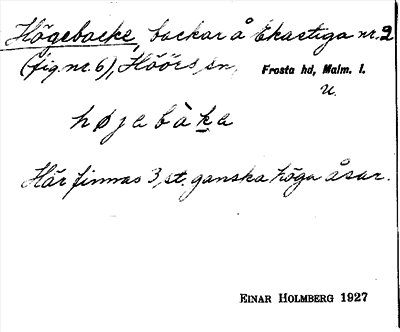 Högebacke, backar å Ekastiga nr. 2
(fig. nr. 6), Höörs sn, Frosta hd, Malm. l.
U.
højabàka
Här finnas 3 st. ganska höga åsar.
EINAR HOLMBERG 1927